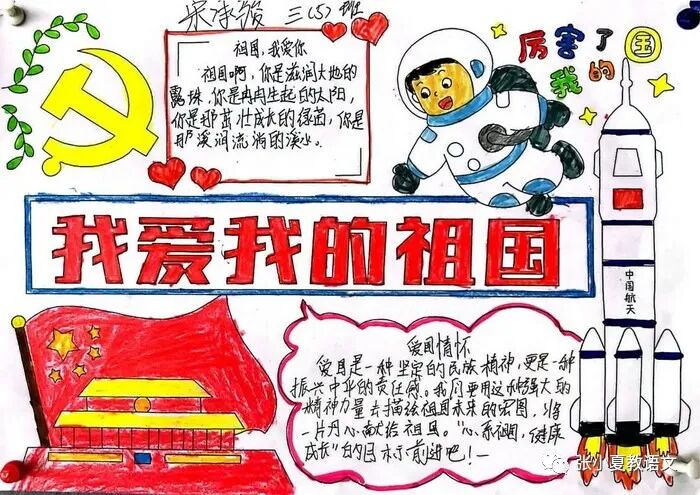 宋诗璇 三(5)班
祖国,我爱你
祖国啊,你是滋润大地的
露珠,你是冉冉生起的太阳,
你是那茁壮成长的绿苗,你是
那溪涧流淌的溪水。
厉害了
我的国
我爱我的祖国
中国航天
爱国情怀
爱国是一种坚定的民族精神,更是一种
振兴中华的责任感。我们要用这种强大的
精神力量去描绘祖国未来的宏图,将
一片丹心献给祖国。“心系祖国,健康
成长”的目标前进吧!
张小夏教语文